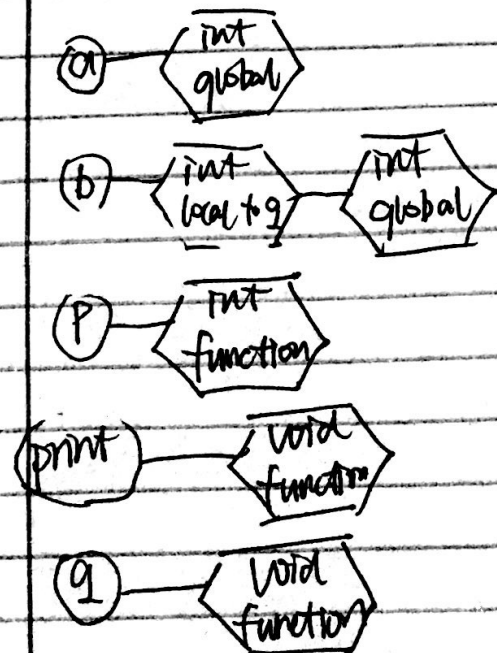 a int
global
b int int
local to q global
p int
function
print void
function
q void
function